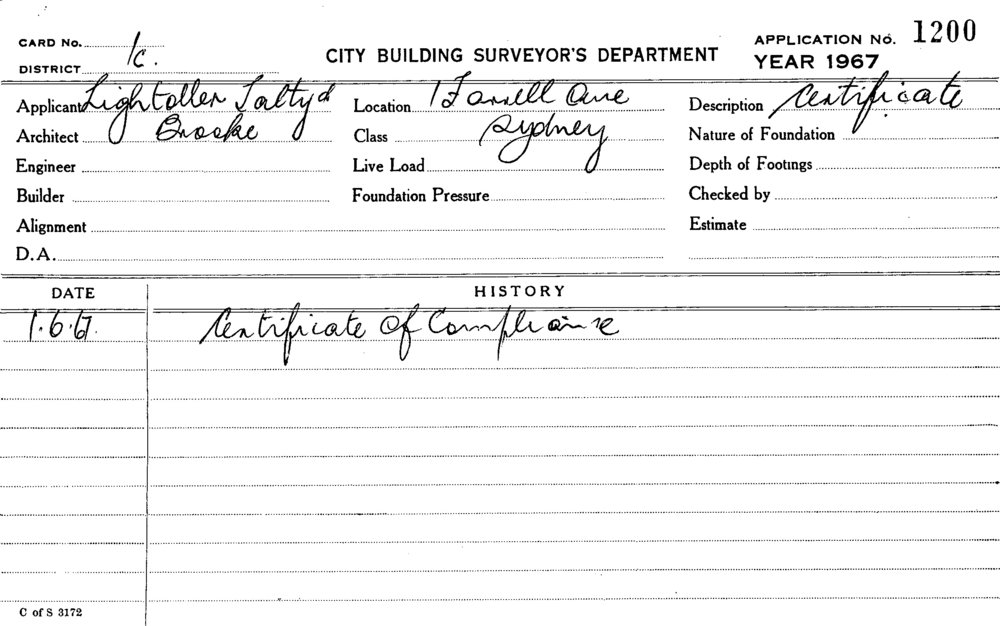 CARD No. 1c.
DISTRICT
CITY BUILDING SURVEYOR'S DEPARTMENT
APPLICATION No. 1200
YEAR 1967
Applicant Lightoller Talty &
Architect Brooke
Engineer
Builder
Alignment
D.A.
Location 1 Farrell Ave
Class Sydney
Live Load
Foundation Pressure
Description Certificate
Nature of Foundation
Depth of Footings
Checked by
Estimate
DATE HISTORY
1.6.67. Certificate of Compliance
C of S 3172